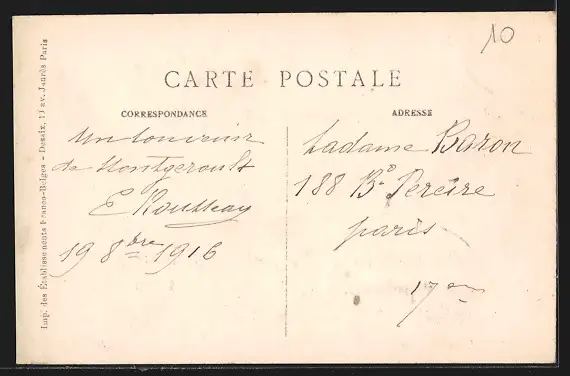 10
CARTE POSTALE
CORRESPONDANCE
ADRESSE
Un souvenir
de Montgeroult
E Rousseau
19 8bre 1916
Madame Baron
188 Bd Pereire
paris
17em
Imp. des Établissements Franco-Belges - Desaix, 11 av. Jaurès Paris